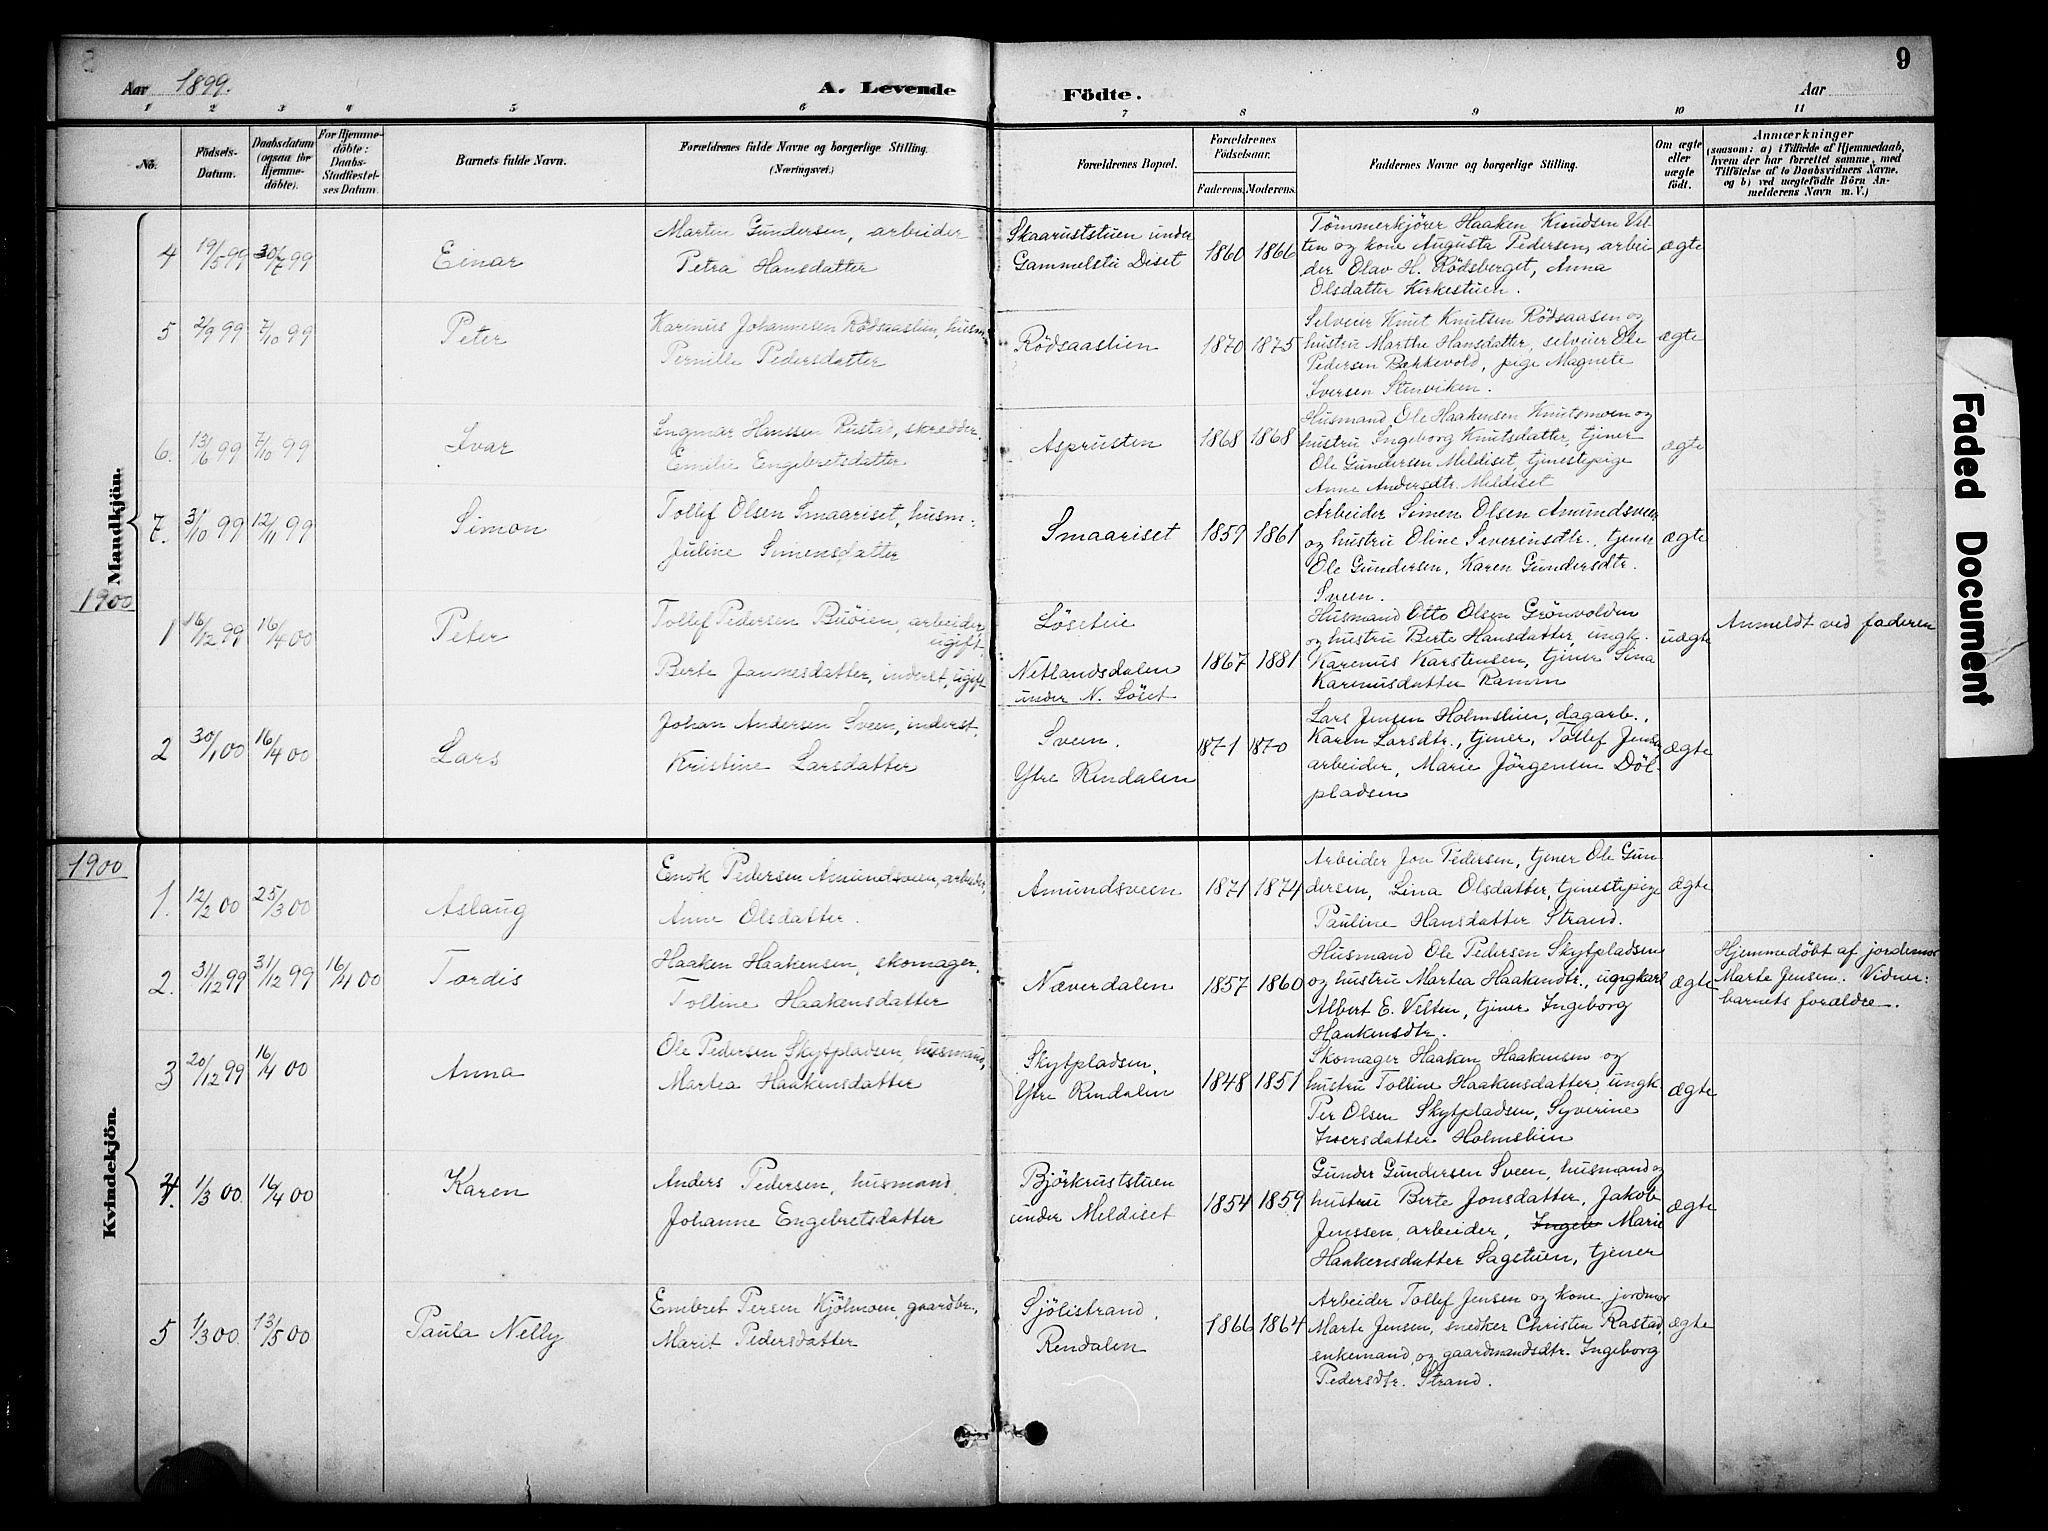 Aar 1899.
A. Levende Födte.
Aar
9
1 2 3 4 5 6 7 8 9 10 11
Nö.
Födsels-
Datum.
Daabsdatum
(ogsaa for
Hjemme-
döbte).
For Hjemme-
döbte:
Daabs-
Stadfæstel-
ses Datum.
Barnets fulde Navn.
Forældrenes fulde Navne og borgerlige Stilling.
(Næringsvei.)
Forældrenes Bopæl.
Forældrenes
Födselsaar.
Faderens. Moderens.
Faddernes Navne og borgerlige Stilling.
Om ægte
eller
uægte
födt.
Anmærkninger
(saasom: a) i Tilfælde af Hjemmedaab,
hvem der har forrettet samme, med
Tilföielse af to Daabsvidners Navne,
og b) ved uægtefödte Börn An-
melderens Navn m. V.)
Mandkjön.
4 19/5 99 30/7 99
Einar
Martin Gundersen, arbeider
Petra Hansdatter
Skaaruststuen under
Gammelstu Diset
1860 1866
Tømmerkjører Haaken Knudsen Vel-
ten og kone Augusta Pedersen, arbei-
der Olav H. Rødsberget, Anna
Olsdatter Kirkestuen.
ægte
5 2/9 99 7/10 99
Peter
Karenus Johannesen Rødsaaslien, husm.
Pernille Pedersdatter
Rødsaaslien
1870 1875
Selveier Knut Knutsen Rødsaasen og
hustru Marthe Hansdatter, selveier Ole
Pedersen Bækkevold, pige Magnete
Iversen Stenviken.
ægte
6. 13/6 99 7/10 99
Ivar
Ingmar Hanssen Rustad, skredder.
Emilie Engebretsdatter
Asprusten
1868 1868
Husmand Ole Haakensen Knutsmoen og
hustru Ingeborg Knutsdatter, tjener
Ole Gundersen Meldiset, tjenestepige
Anne Andersdtr. Meldiset
ægte
7. 31/10 99 12/11 99
Simon
Tollef Olsen Smaariset, husm.
Juline Simensdatter
Smaariset
1857 1861
Arbeider Simen Olsen Amundsveen
og hustru Oline Severinsdtr., tjener
Ole Gundersen, Karen Gundersdtr.
Sveen.
ægte
1900
1 16/12 99 16/4 00
Peter
Tollef Pedersen Buøien, arbeider,
ugift,
Berte Jannesdatter, inderst, ugift
Løsetlie
Netlandsdalen
under N. Løset
1867 1881
Husmand Otto Olsen Grønvolden
og hustru Berte Hansdatter, ungk.
Karenus Karstensen, tjener Sina
Karenusdatter Ramm
uægte
Anmeldt ved faderen
2 30/1 00 16/4 00
Lars
Johan Andersen Sveen, inderst.
Kristine Larsdatter
Sveen.
Ytre Rendalen
1871 1870
Lars Jensen Holmslien, dagarb.,
Karen Larsdtr., tjener, Tollef Jensen,
arbeider, Marie Jørgensen Döl-
pladsen
ægte
1900
Kvindekjön.
1. 12/2 00 25/3 00
Aslaug
Enok Pedersen Amundsveen, arbeider,
Anne Olsdatter.
Amundsveen
1871 1874
Arbeider Jon Pedersen, tjener Ole Gun-
dersen, Lina Olsdatter, tjenestepige
Pauline Hansdatter Strand.
ægte
2. 31/12 99 31/12 99 16/4 00
Tordis
Haaken Haakensen, skomager.
Tolline Haakensdatter
Næverdalen
1857 1860
Husmand Ole Pedersen Skytpladsen
og hustru Martea Haakendtr., ugngkarl
Albert E. Velten, tjener Ingeborg
Haakensdtr.
ægte
Hjemmedøbt af jordemor
Marte Jensen. Vidner:
barnets forældre.
3 20/12 99 16/4 00
Anna
Ole Pedersen Skytpladsen, husmand,
Martea Haakensdatter
Skytpladsen,
Ytre Rendalen
1848 1851
Skomager Haaken Haakensen og
hustru Tolline Haakensdatter, ungk.
Per Olsen Skytpladsen, Syverine
Iversdatter Holmslien
ægte
4. 1/3 00 16/4 00
Karen
Anders Pedersen, husmand,
Johanne Engebretsdatter
Björkruststuen
under Meldiset
1854 1859
Gunder Gundersen Sveen, husmand og
hustru Berte Jonsdatter, Jakob
Jenssen, arbeider, Ingeb Marie
Haakensdatter Sagstuen, tjener
ægte
5 1/3 00 13/5 00
Paula Nelly
Embret Persen Kjölmoen, gaardbr.,
Marit Pedersdatter
Sjölistrand,
Rendalen
1866 1864
Arbeider Tollef Jensen og kone, jordmor
Marte Jensen, snedker Christen Rastad,
enkemand, og gaardmandsdtr. Ingeborg
Pedersdtr. Strand.
ægte
Faded Document